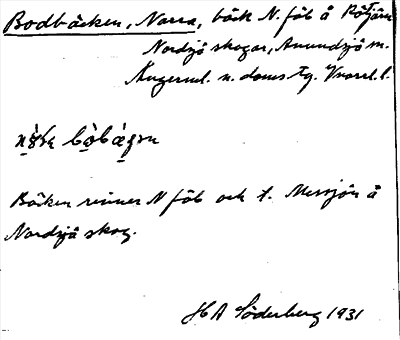 Bodbäcken, Norra, bäck N. föb å Rötjärn
Nordsjö skogar, Anundsjö sn.
Ångerml. n. doms tg. Vnorrl. l.
Bäcken rinner N föb och t. Messjön å
Nordsjö skog.
H A Söderberg 1931